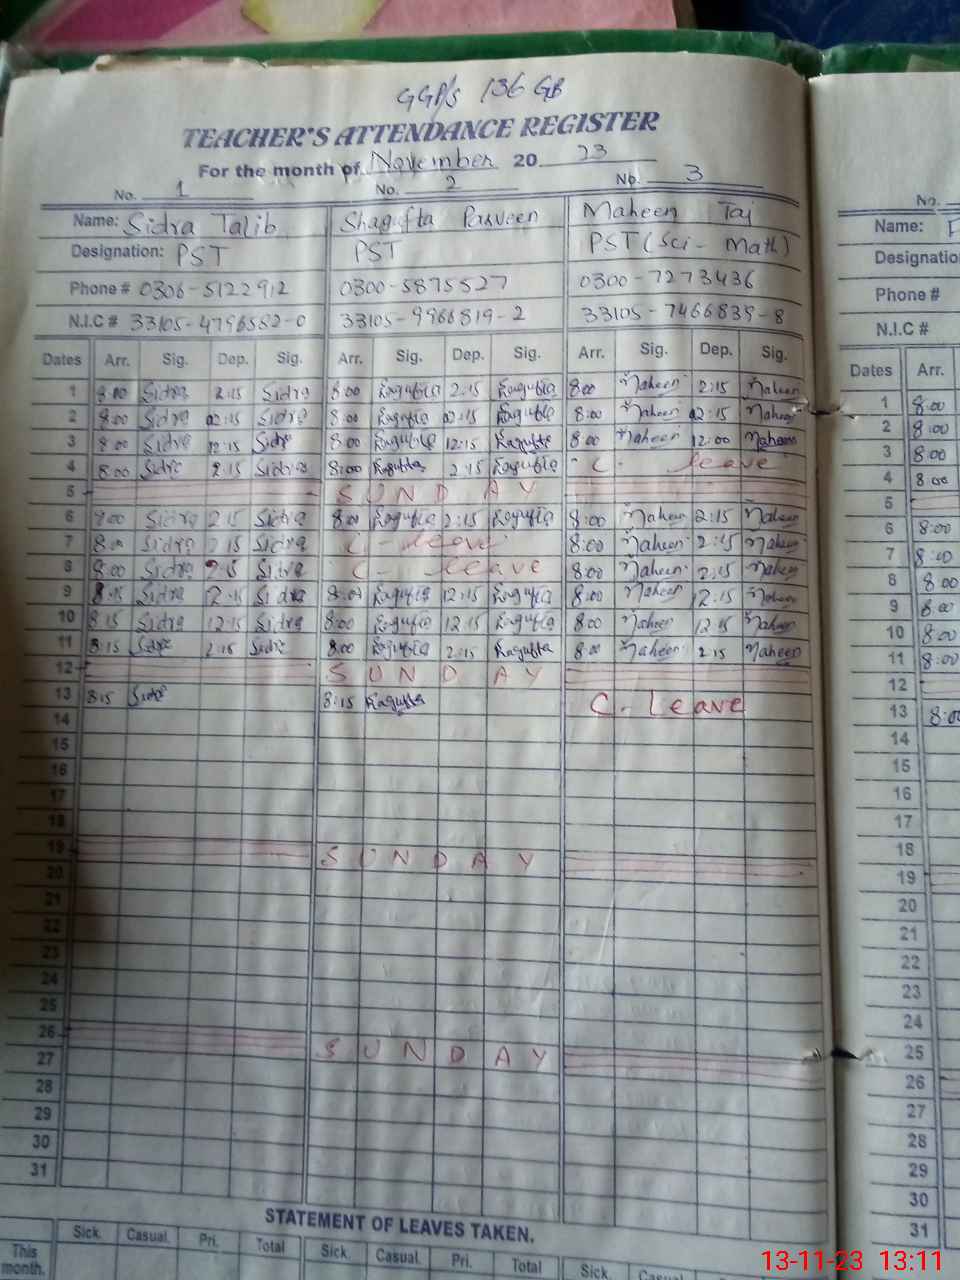 GGP/S 136 GB
TEACHER'S ATTENDANCE REGISTER
For the month of November 2023
No. 1 No. 2 No. 3 No.
Name: Sidra Talib Shagufta Parveen Maheen Taj Name:
Designation: PST PST PST (Sci - Math) Designatio
Phone # 0306-5122912 0300-5875527 0300-7273436 Phone #
N.I.C # 33105-4796582-0 33105-9966819-2 33105-7466839-8 N.I.C #
Dates Arr. Sig. Dep. Sig. Arr. Sig. Dep. Sig. Arr. Sig. Dep. Sig. Dates Arr.
1 8:00 Sidra 2:15 Sidra 8:00 2:15 8:00 Maheen 2:15 Maheen 1 8:00
2 8:00 Sidra 02:15 Sidra 8:00 02:15 8:00 Maheen 02:15 Maheen 2 8:00
3 8:00 Sidra 12:15 Sidra 8:00 12:15 8:00 Maheen 12:00 Maheen 3 8:00
4 8:00 Sidra 2:15 Sidra 8:00 2:15 C. leave 4 8:00
5 SUNDAY 5
6 8:00 Sidra 2:15 Sidra 8:00 2:15 8:00 Maheen 2:15 Maheen 6 8:00
7 8:00 Sidra 2:15 Sidra C - leave 8:00 Maheen 2:15 Maheen 7 8:00
8 8:00 Sidra 2:15 Sidra C - leave 8:00 Maheen 2:15 Maheen 8 8:00
9 8:15 Sidra 2:15 Sidra 8:00 12:15 8:00 Maheen 12:15 Maheen 9 8:00
10 8:15 Sidra 12:15 Sidra 8:00 12:15 8:00 Maheen 12:15 Maheen 10 8:00
11 8:15 Sidra 2:15 Sidra 8:00 2:15 8:00 Maheen 2:15 Maheen 11 8:00
12 SUNDAY 12
13 8:15 Sidra 8:15 C. Leave 13 8:00
14 14
15 15
16 16
17 17
18 18
19 SUNDAY 19
20 20
21 21
22 22
23 23
24 24
25 25
26 SUNDAY 26
27 27
28 28
29 29
30 30
31 31
STATEMENT OF LEAVES TAKEN.
Sick. Casual. Pri. Total Sick. Casual. Pri. Total Sick. Casual.
This month.
13-11-23 13:11